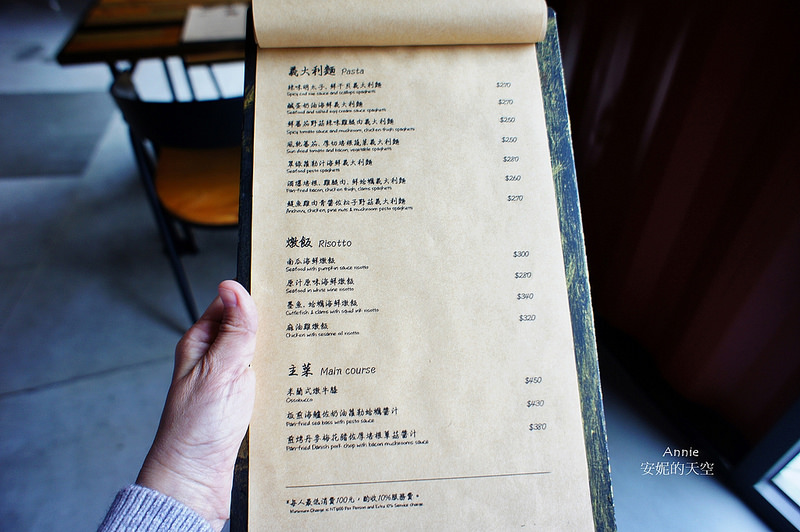 義大利麵 Pasta
辣味明太子, 鮮干貝義大利麵 $270
Spicy cod roe sauce and scallops spaghetti
鹹蛋奶油海鮮義大利麵 $270
Seafood and salted egg cream sauce spaghetti
鮮番茄野菇辣味雞腿肉義大利麵 $250
Spicy tomato sauce and mushroom, chicken thigh spaghetti
風乾番茄, 厚切培根蔬菜義大利麵 $250
Sun dried tomato and bacon, vegetable spaghetti
翠綠蘿勒汁海鮮義大利麵 $280
Seafood pesto spaghetti
培根, 雞腿肉, 鮮蛤蠣義大利麵 $260
Pan-fried bacon, chicken thigh, clams spaghetti
鯷魚雞肉青醬佐松子野菇義大利麵 $270
Anchovy, chicken, pine nuts & mushroom pesto spaghetti
燉飯 Risotto
南瓜海鮮燉飯 $300
Seafood with pumpkin sauce risotto
原汁原味海鮮燉飯 $280
Seafood in white wine risotto
墨魚, 蛤蠣海鮮燉飯 $340
Cuttlefish & clams with squid ink risotto
麻油雞燉飯 $320
Chicken with sesame oil risotto
主菜 Main course
米蘭式燉牛膝 $450
Ossobucco
板煎海鱸佐奶油蘿勒蛤蠣醬汁 $430
Pan-fried sea bass with pesto sauce
煎烤丹麥梅花豬佐厚培根蕈菇醬汁 $380
Pan-fried Danish pork chop with bacon mushrooms sauce
*每人最低消費100元, 酌收10%服務費。
Minimum Charge is NT$100 Per Person and Extra 10% Service charge
Annie
安妮的天空